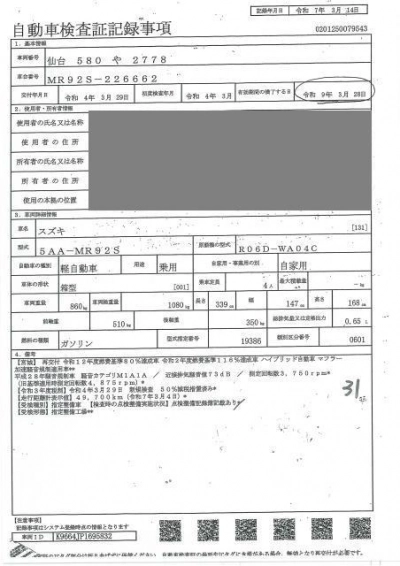 記録年月日 令和 7年 3月 14日
自動車検査証記録事項
0201250079543
1. 基本情報
車両番号 仙台 580 や 2778
車台番号 MR92S-226662
交付年月日 令和 4年 3月 29日 初度検査年月 令和 4年 3月 有効期間の満了する日 令和 9年 3月 28日
2. 使用者・所有者情報
使用者の氏名又は名称
使用者の住所
所有者の氏名又は名称
所有者の住所
使用の本拠の位置
3. 車両詳細情報
車名 スズキ [131]
型式 5AA-MR92S 原動機の型式 R06D-WA04C
自動車の種別 軽自動車 用途 乗用 自家用・事業用の別 自家用
車体の形状 箱型 [001] 乗車定員 4人 最大積載量
車両重量 860kg 車両総重量 1080kg 長さ 339cm 幅 147cm 高さ 168cm
前軸重 510kg 後軸重 350kg 総排気量又は定格出力 0.65 L
燃料の種類 ガソリン 型式指定番号 19386 類別区分番号 0601
4. 備考
再交付 令和12年度燃費基準80%達成車 令和2年度燃費基準116%達成車 ハイブリッド自動車 マフラー
加速騒音規制適用車**
平成28年騒音規制車 騒音カテゴリM1A1A / 近接排気騒音値73dB / 測定回転数3,750rpm*
(旧基準適用時測定回転数4,875rpm)*
50%減税措置済み*
[走行距離計表示値] 49,700km (令和7年3月4日)*
[受検種別] 指定整備車 [検査時の点検整備実施状況] 点検整備記録簿記載あり*
[受検形態] 指定整備工場**
31
[注意事項]
記録事項はシステム登録時点の情報となります
車両ID K9664JP1695832